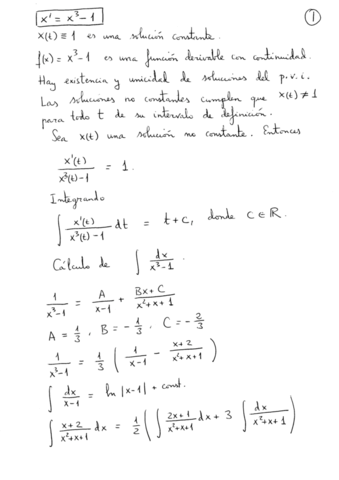 x' = x³-1 ①
x(t) ≡ 1 es una solución constante.
f(x) = x³-1 es una función derivable con continuidad.
Hay existencia y unicidad de soluciones del p.v.i.
Las soluciones no constantes cumplen que x(t) ≠ 1
para todo t de su intervalo de definición.
Sea x(t) una solución no constante. Entonces
x'(t)/(x³(t)-1) = 1.
Integrando
∫ x'(t)/(x³(t)-1) dt = t+C, donde C ∈ ℝ.
Cálculo de ∫ dx/(x³-1)
1/(x³-1) = A/(x-1) + (Bx+C)/(x²+x+1)
A = 1/3, B = -1/3, C = -2/3
1/(x³-1) = 1/3 ( 1/(x-1) - (x+2)/(x²+x+1) )
∫ dx/(x-1) = ln |x-1| + const.
∫ (x+2)/(x²+x+1) dx = 1/2 ( ∫ (2x+1)/(x²+x+1) dx + 3 ∫ dx/(x²+x+1) )